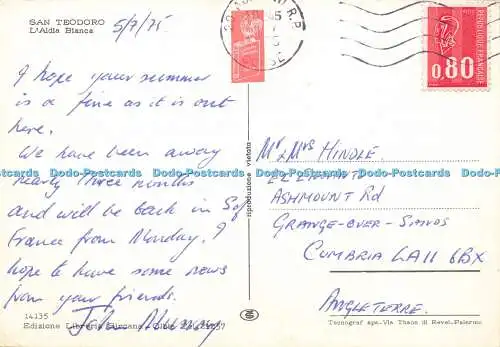 SAN TEODORO
L'Aldia Bianca
5/7/75
I hope your summer
is a fine as it is out
here.
We have been away
nearly three months
and will be back in
France from Monday. I
hope to have some news
from your friends.
John
14135
Edizione Libreria
riproduzione vietata
REPUBLIQUE FRANÇAISE
0,80
Mr & Mrs HINDLE
ASHMOUNT Rd
GRANGE-OVER-SANDS
CUMBRIA LA11 6BX
ANGLETERRE.
Tecnograf spa - Via Thaon di Revel - Palermo
Dodo-Postcards Dodo-Postcards Dodo-Postcards Dodo-Postcards Dodo-Postcards